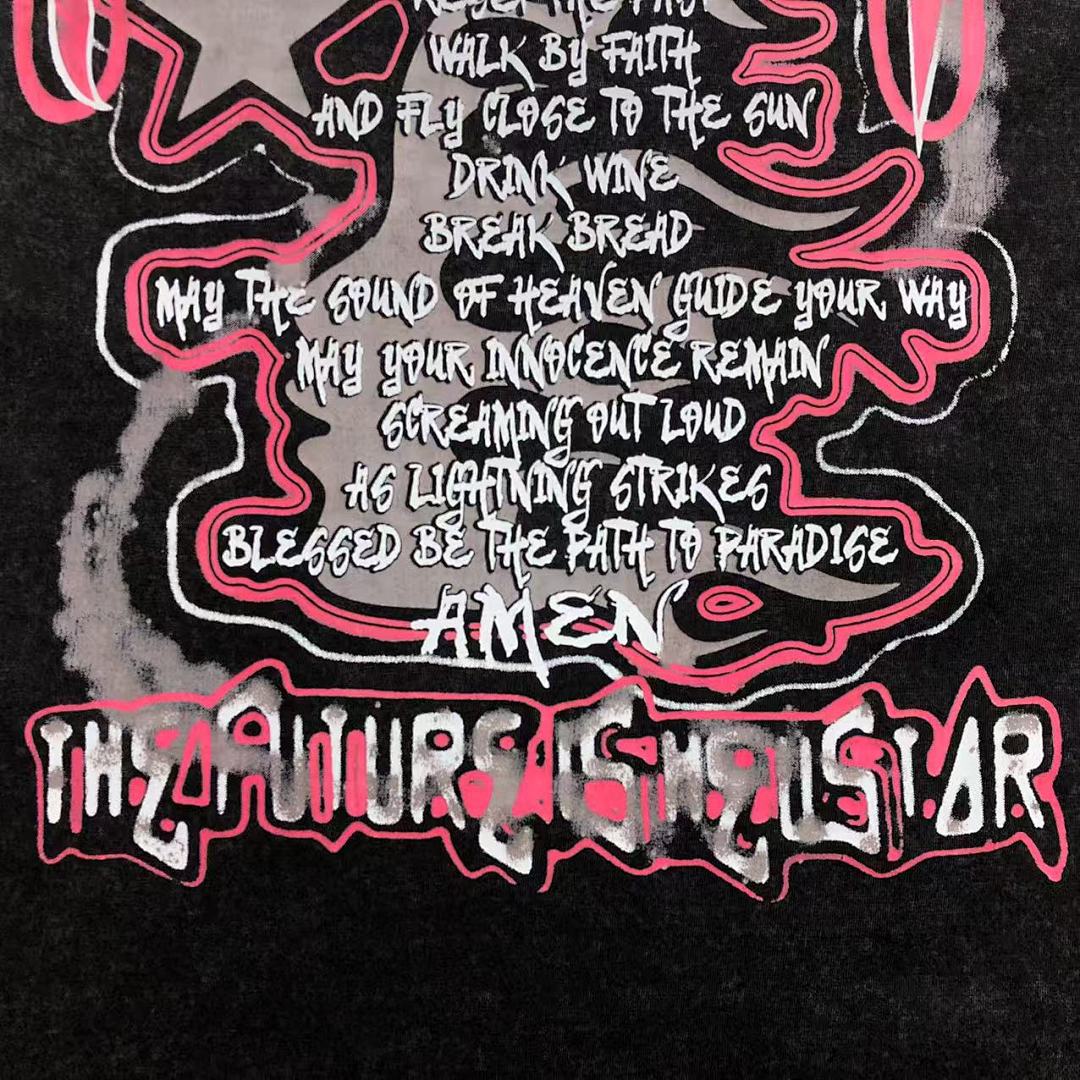 RESET THE PAST
WALK BY FAITH
AND FLY CLOSE TO THE SUN
DRINK WINE
BREAK BREAD
MAY THE SOUND OF HEAVEN GUIDE YOUR WAY
MAY YOUR INNOCENCE REMAIN
SCREAMING OUT LOUD
AS LIGHTNING STRIKES
BLESSED BE THE PATH TO PARADISE
AMEN
THE FUTURE IS HELLSTAR